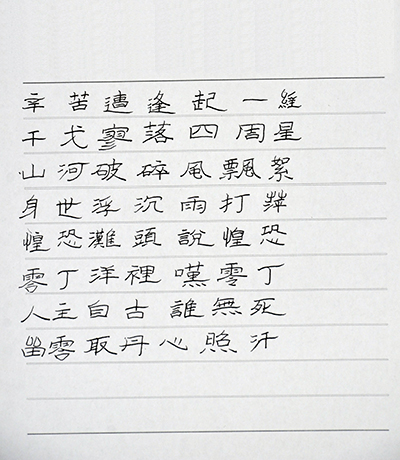 辛苦遭逢起一
干戈寥落四周星
山河破碎風飄絮
身世浮沉雨打萍
惶恐灘頭說惶恐
零丁洋裡嘆零丁
人主自古誰無死
零取丹心照汗